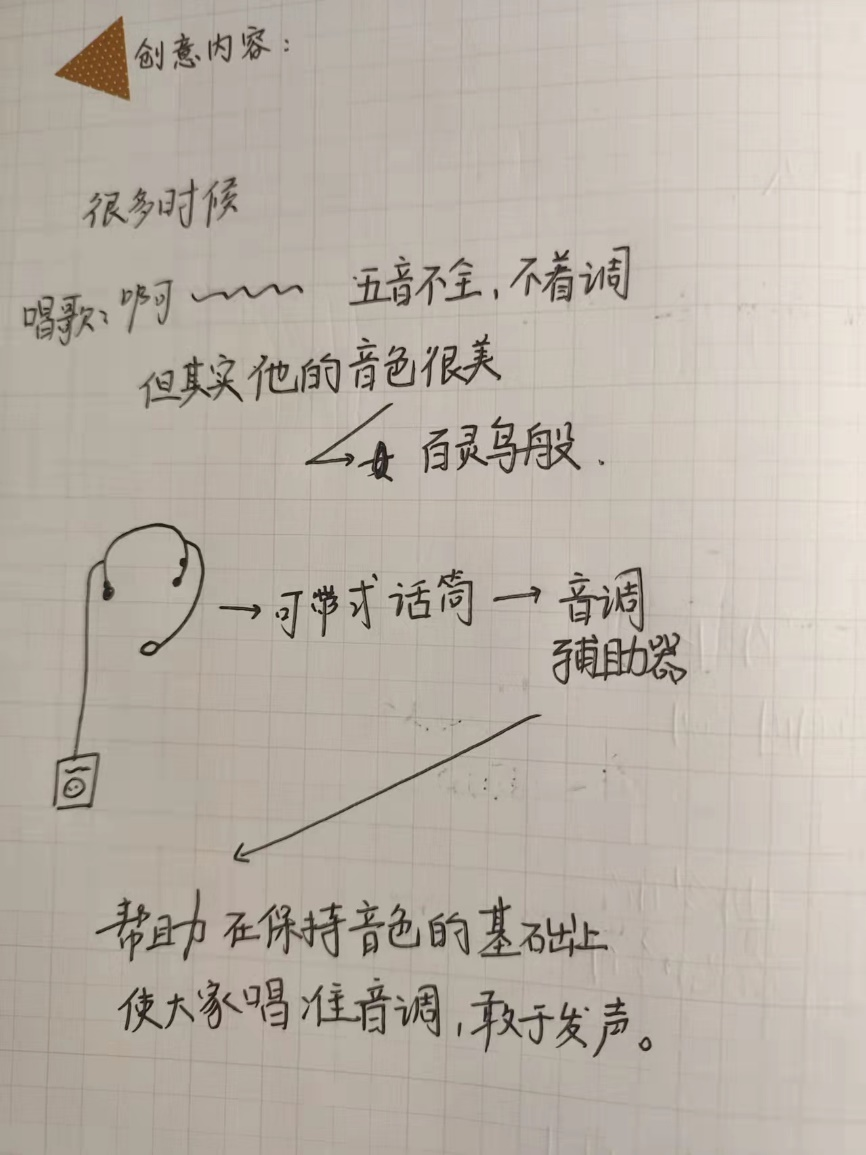 创意内容:
很多时候
唱歌: 啊 五音不全, 不着调
但其实他的音色很美
百灵鸟般.
→ 可带式话筒 → 音调
辅助器
帮助在保持音色的基础上
使大家唱准音调, 敢于发声。